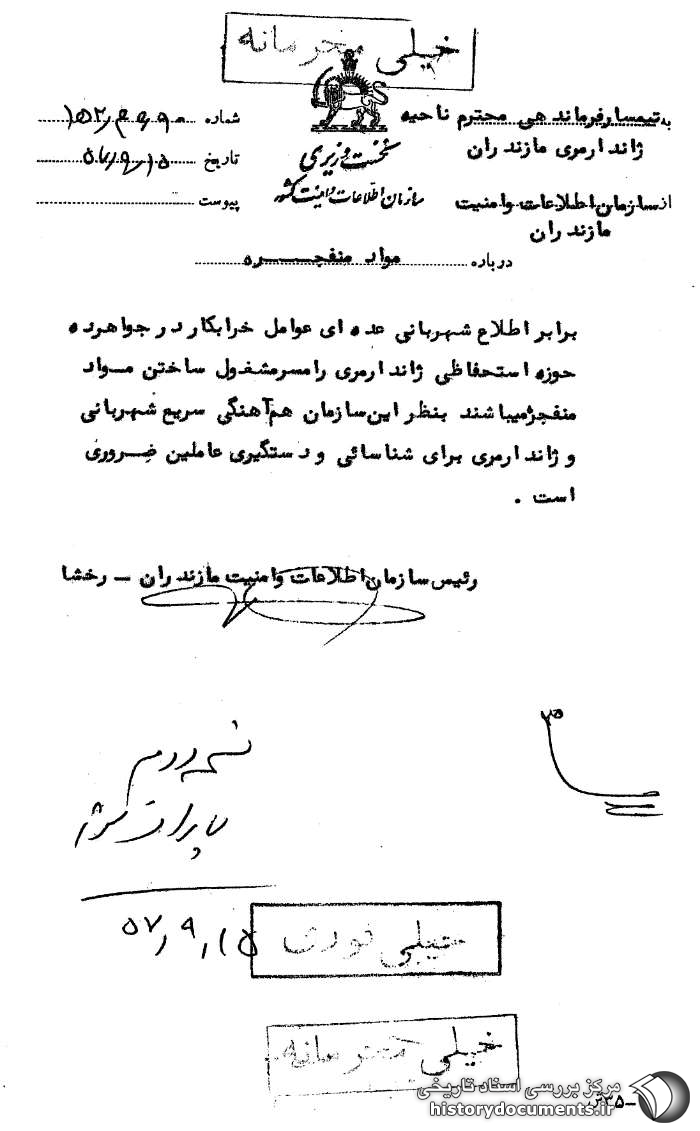 خیلی محرمانه
به تیمسار فرماندهی محترم ناحیه
ژاندارمری مازندران
شماره ۱۵۲/۴۶۹۰
تاریخ ۵۷/۹/۱۵
پیوست
نخست وزیری
سازمان اطلاعات و امنیت کشور
از سازمان اطلاعات و امنیت
مازندران
درباره مواد منفجره
برابر اطلاع شهربانی عده ای عوامل خرابکار در جواهرده
حوزه استحفاظی ژاندارمری رامسر مشغول ساختن مواد
منفجره میباشند بنظر این سازمان هم‌آهنگی سریع شهربانی
و ژاندارمری برای شناسائی و دستگیری عاملین ضروری
است .
رئیس سازمان اطلاعات و امنیت مازندران – رخشا
۵۷/۹/۱۵
خیلی فوری
خیلی محرمانه
مرکز بررسی اسناد تاریخی
historydocuments.ir